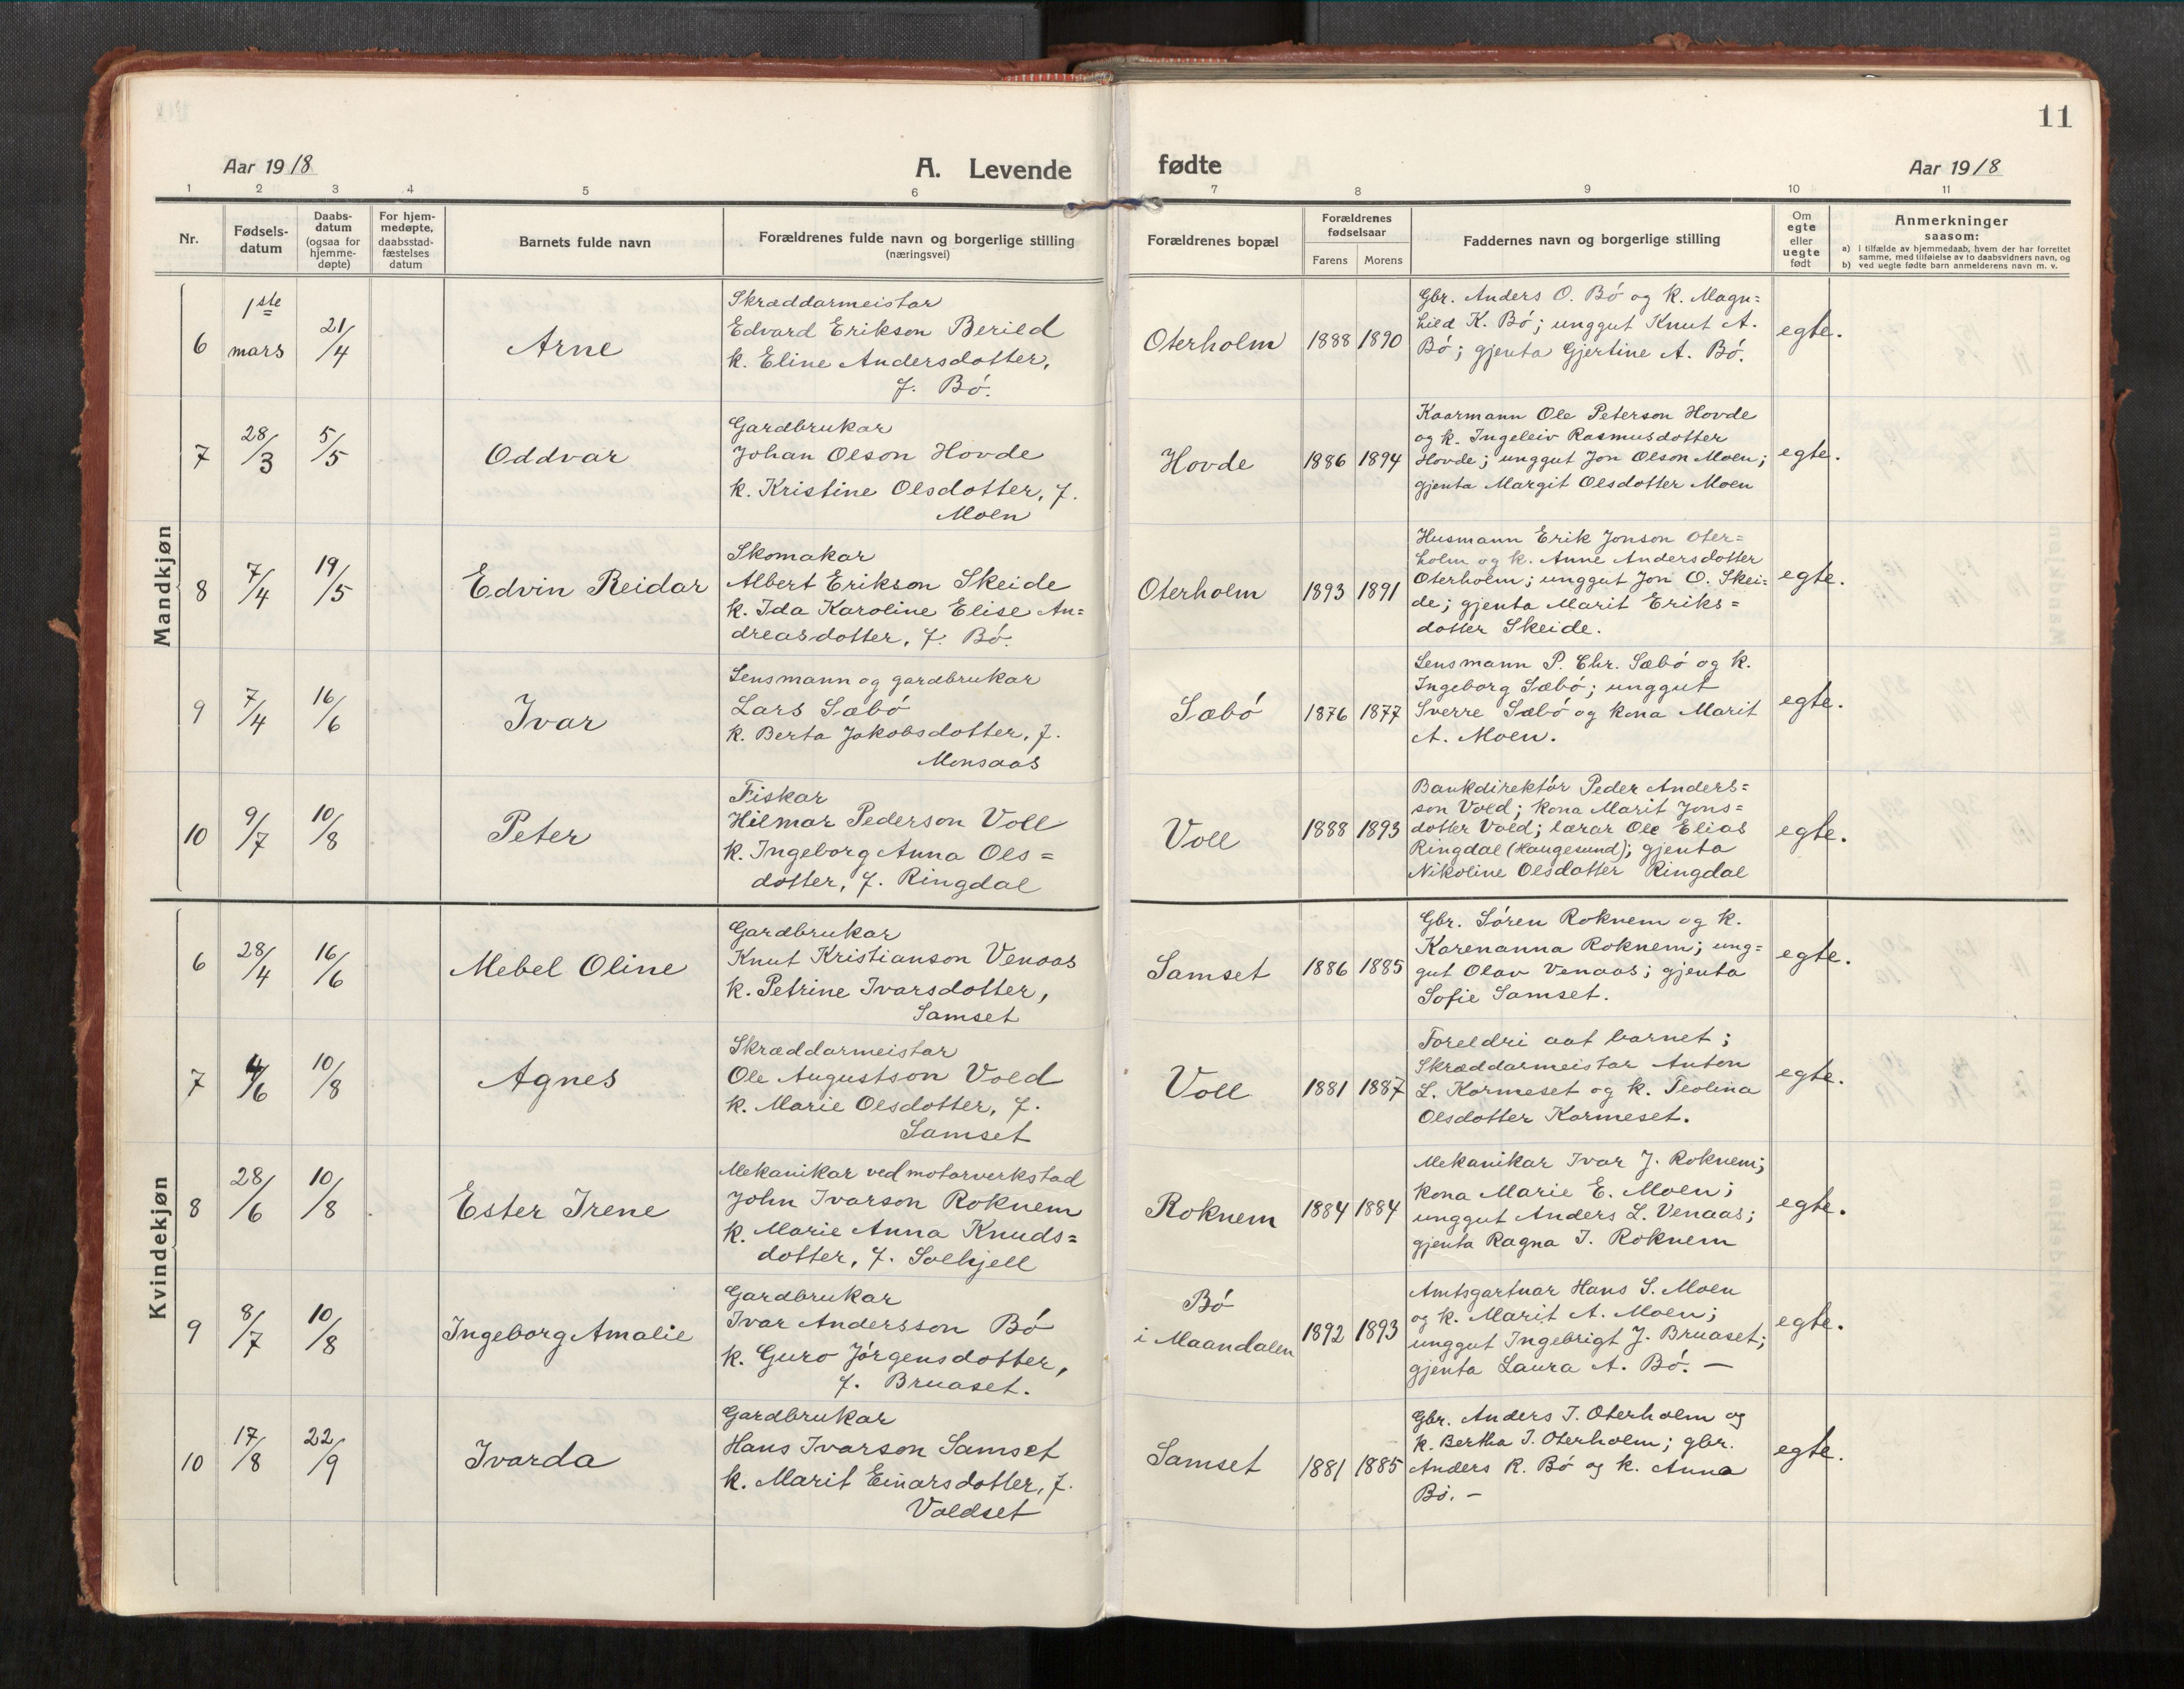 11
Aar 1918
A. Levende fødte
Aar 1918
1 2 3 4 5 6 7 8 9 10 11
Nr.
Fødsels-
datum
Daabs-
datum
(ogsaa for
hjemme-
døpte)
For hjem-
medøpte,
daabsstad-
fæstelses
datum
Barnets fulde navn
Forældrenes fulde navn og borgerlige stilling
(næringsvei)
Forældrenes bopæl
Forældrenes
fødselsaar
Farens Morens
Faddernes navn og borgerlige stilling
Om
egte
eller
uegte
født
Anmerkninger
saasom:
a) i tilfælde av hjemmedaab, hvem der har forrettet
samme, med tilføielse av to daabsvidners navn, og
b) ved uegte fødte barn anmelderens navn m. v.
Mandkjøn
6
1ste
mars
21/4
Arne
Skræddarmeistar
Edvard Erikson Berild
k. Eline Andersdotter,
f. Bó.
Oterholm
1888 1890
Gbr. Anders O. Bó og k. Magn=
hild K. Bó; unggut Knut A.
Bó; gjenta Gjertine A. Bó.
egte.
7
28/3
5/5
Oddvar
Gardbrukar
Johan Olson Hovde
k. Kristine Olsdotter, f.
Moen
Hovde
1886 1894
Kaarmann Ole Peterson Hovde
og k. Ingeleiv Rasmusdotter
Hovde; unggut Jon Olson Moen;
gjenta Margit Olsdotter Moen
egte.
8
7/4
19/5
Edvin Reidar
Skomakar
Albert Erikson Skeide
k. Ida Karoline Elise An=
dreasdotter, f. Bó.
Oterholm
1893 1891
Husmann Erik Jonson Oter=
holm og k. Anne Andersdotter
Oterholm; unggut Jon O. Skei=
de; gjenta Marit Eriks=
dotter Skeide.
egte.
9
7/4
16/6
Ivar
Lensmann og gardbrukar
Lars Sæbó
k. Berta Jakobsdotter, f.
Monsaas
Sæbó
1876 1877
Lensmann P. Chr. Sæbó og k.
Ingeborg Sæbó; unggut
Sverre Sæbó og kona Marit
A. Moen.
egte.
10
9/7
10/8
Peter
Fiskar
Hilmar Pederson Voll
k. Ingeborg Anna Ols=
dotter, f. Ringdal
Voll
1888 1893
Bankdirektór Peder Anders=
son Vold; kona Marit Jons=
dotter Vold; lærar Ole Elias
Ringdal (Haugesund); gjenta
Nikoline Olsdotter Ringdal
egte.
Kvindekjøn
6
28/4
16/6
Mebel Oline
Gardbrukar
Knut Kristianson Venaas
k. Petrine Ivarsdotter,
Samset
Samset
1886 1885
Gbr. Sóren Roknem og k.
Karenanna Roknem; ung=
gut Olav Venaas; gjenta
Sofie Samset.
egte.
7
4/6
10/8
Agnes
Skræddarmeistar
Ole Augustson Vold
k. Marie Olsdotter, f.
Samset
Voll
1881 1887
Foreldri aat barnet;
Skræddarmeistar Anton
L. Kormeset og k. Teolina
Olsdotter Kormeset.
egte.
8
28/6
10/8
Ester Irene
Mekanikar ved motorverkstad
John Ivarson Roknem
k. Marie Anna Knuds=
dotter, f. Solhjell
Roknem
1884 1884
Mekanikar Ivar J. Roknem;
kona Marie E. Moen;
unggut Anders L. Venaas;
gjenta Ragna I. Roknem
egte.
9
8/7
10/8
Ingeborg Amalie
Gardbrukar
Ivar Andersson Bó
k. Guro Jórgensdotter,
f. Bruaset.
Bó
i Maandalen
1892 1893
Amtsgartnar Hans S. Moen
og k. Marit A. Moen;
unggut Ingebrigt J. Bruaset;
gjenta Laura A. Bó. —
egte.
10
17/8
22/9
Ivarda
Gardbrukar
Hans Ivarson Samset
k. Marit Einarsdotter, f.
Voldset
Samset
1881 1885
Gbr. Anders I. Oterholm og
k. Bertha I. Oterholm; gbr.
Anders R. Bó og k. Anna
Bó. —
egte.